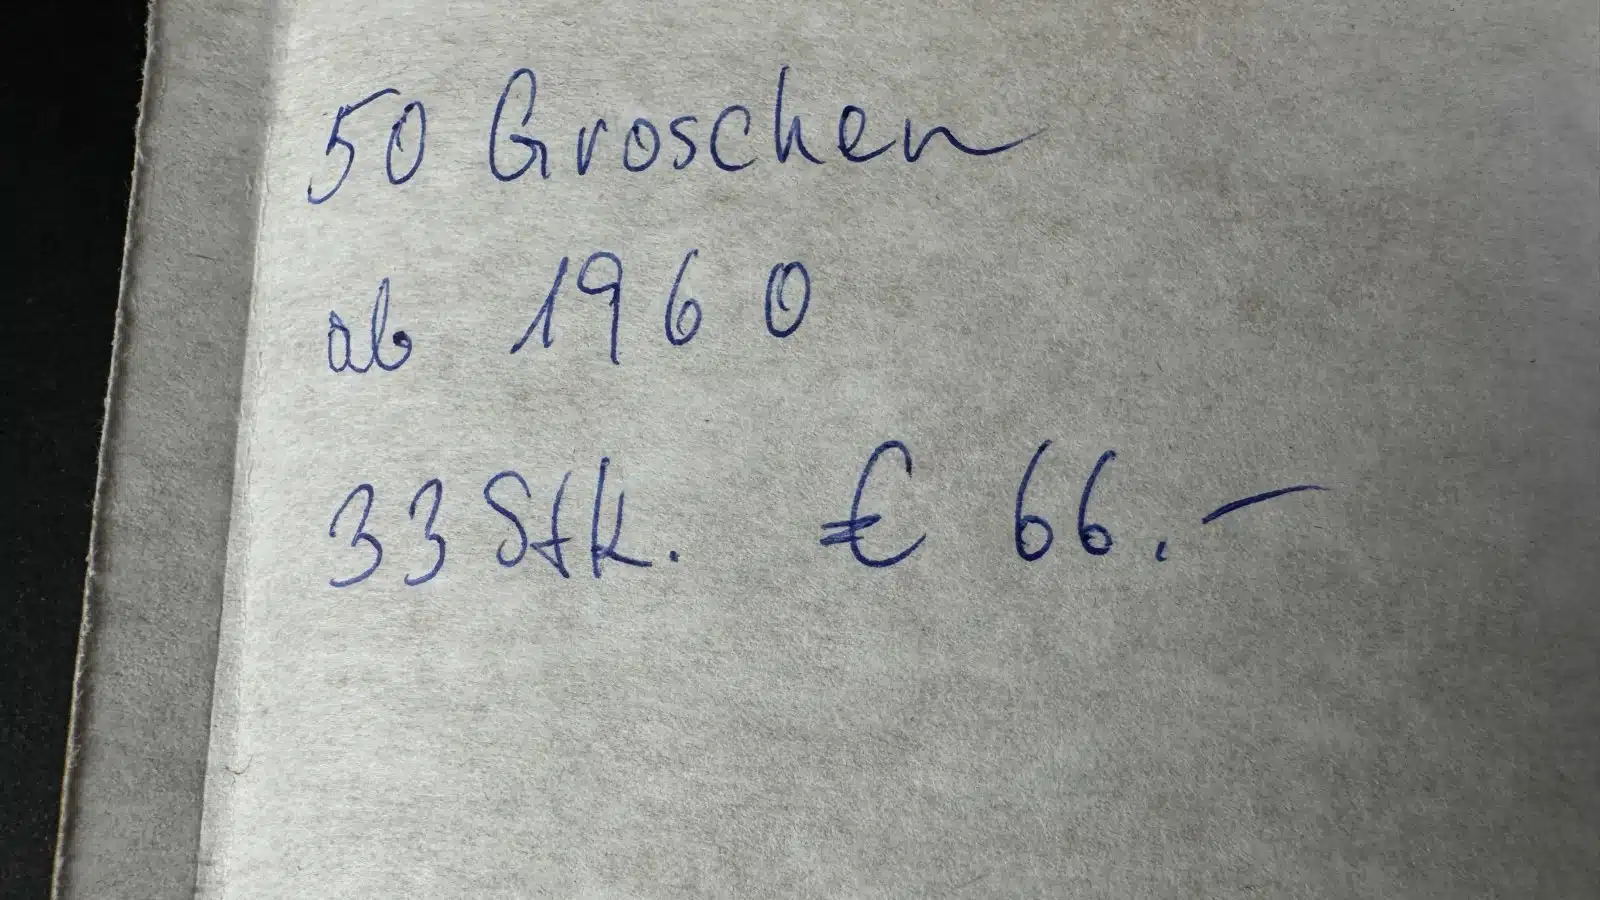 50 Groschen
ab 1960
33 Stk. € 66.-